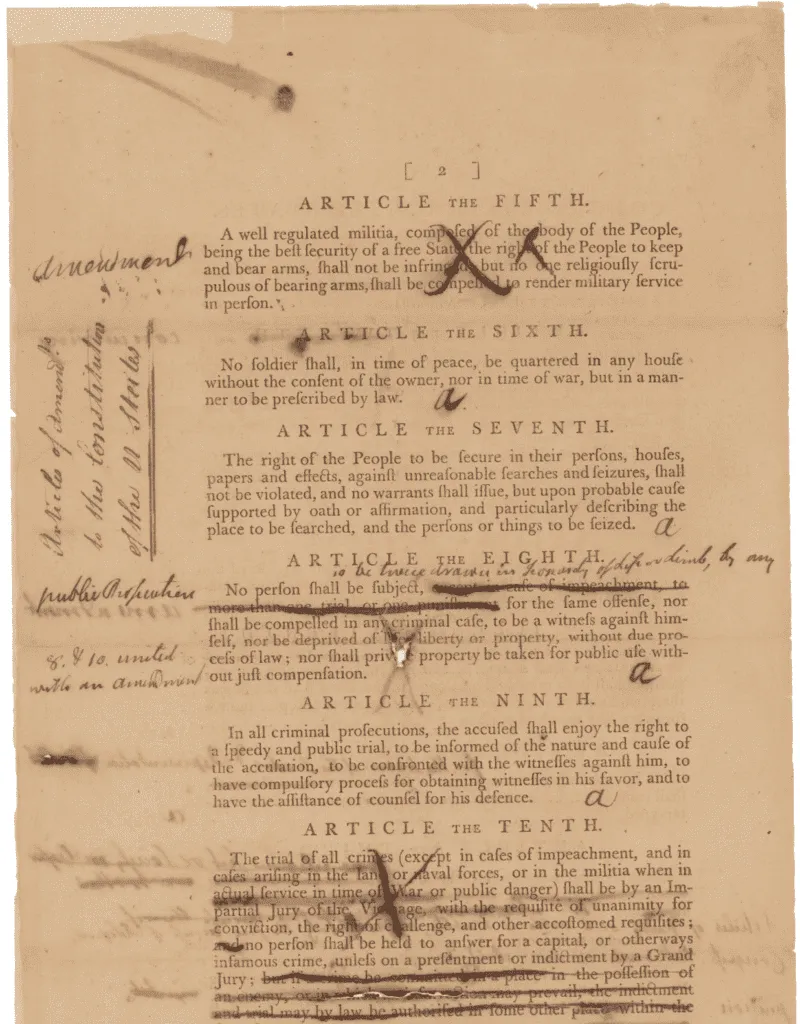 [ 2 ]
ARTICLE THE FIFTH.
A well regulated militia, compoſed of the body of the People,
being the beſt ſecurity of a free State, the right of the People to keep
and bear arms, ſhall not be infringed, but no one religiouſly ſcru-
pulous of bearing arms, ſhall be compelled to render military ſervice
in perſon.
amendment
ARTICLE THE SIXTH.
No ſoldier ſhall, in time of peace, be quartered in any houſe
without the conſent of the owner, nor in time of war, but in a man-
ner to be preſcribed by law. a
Articles of Amend.ts
to the Constitution
of the U States
ARTICLE THE SEVENTH.
The right of the People to be ſecure in their perſons, houſes,
papers and effects, againſt unreaſonable ſearches and ſeizures, ſhall
not be violated, and no warrants ſhall iſſue, but upon probable cauſe
ſupported by oath or affirmation, and particularly deſcribing the
place to be ſearched, and the perſons or things to be ſeized. a
ARTICLE THE EIGHTH.
to be twice in jeopardy of life or limb, by any
public Prosecution
No perſon ſhall be ſubject, except in caſe of impeachment, to
more than one trial, or one puniſhment for the ſame offenſe, nor
ſhall be compelled in any criminal caſe, to be a witneſs againſt him-
ſelf, nor be deprived of liberty or property, without due pro-
ceſs of law; nor ſhall private property be taken for public uſe with-
out juſt compenſation. a
8. & 10. united
with an amendment
ARTICLE THE NINTH.
In all criminal proſecutions, the accuſed ſhall enjoy the right to
a ſpeedy and public trial, to be informed of the nature and cauſe of
the accuſation, to be confronted with the witneſſes againſt him, to
have compulſory proceſs for obtaining witneſſes in his favor, and to
have the aſſiſtance of counſel for his defence. a
ARTICLE THE TENTH.
The trial of all crimes (except in caſes of impeachment, and in
caſes ariſing in the land or naval forces, or in the militia when in
actual ſervice in time of War or public danger) ſhall be by an Im-
partial Jury of the Vicinage, with the requiſite of unanimity for
conviction, the right of challenge, and other accoſtomed requiſites;
and no perſon ſhall be held to anſwer for a capital, or otherways
infamous crime, unleſs on a preſentment or indictment by a Grand
Jury; but if a crime be committed in a place in the poſſeſſion of
an enemy, or in which may prevail, the indictment
and trial may by law be authoriſed in ſome other place within the